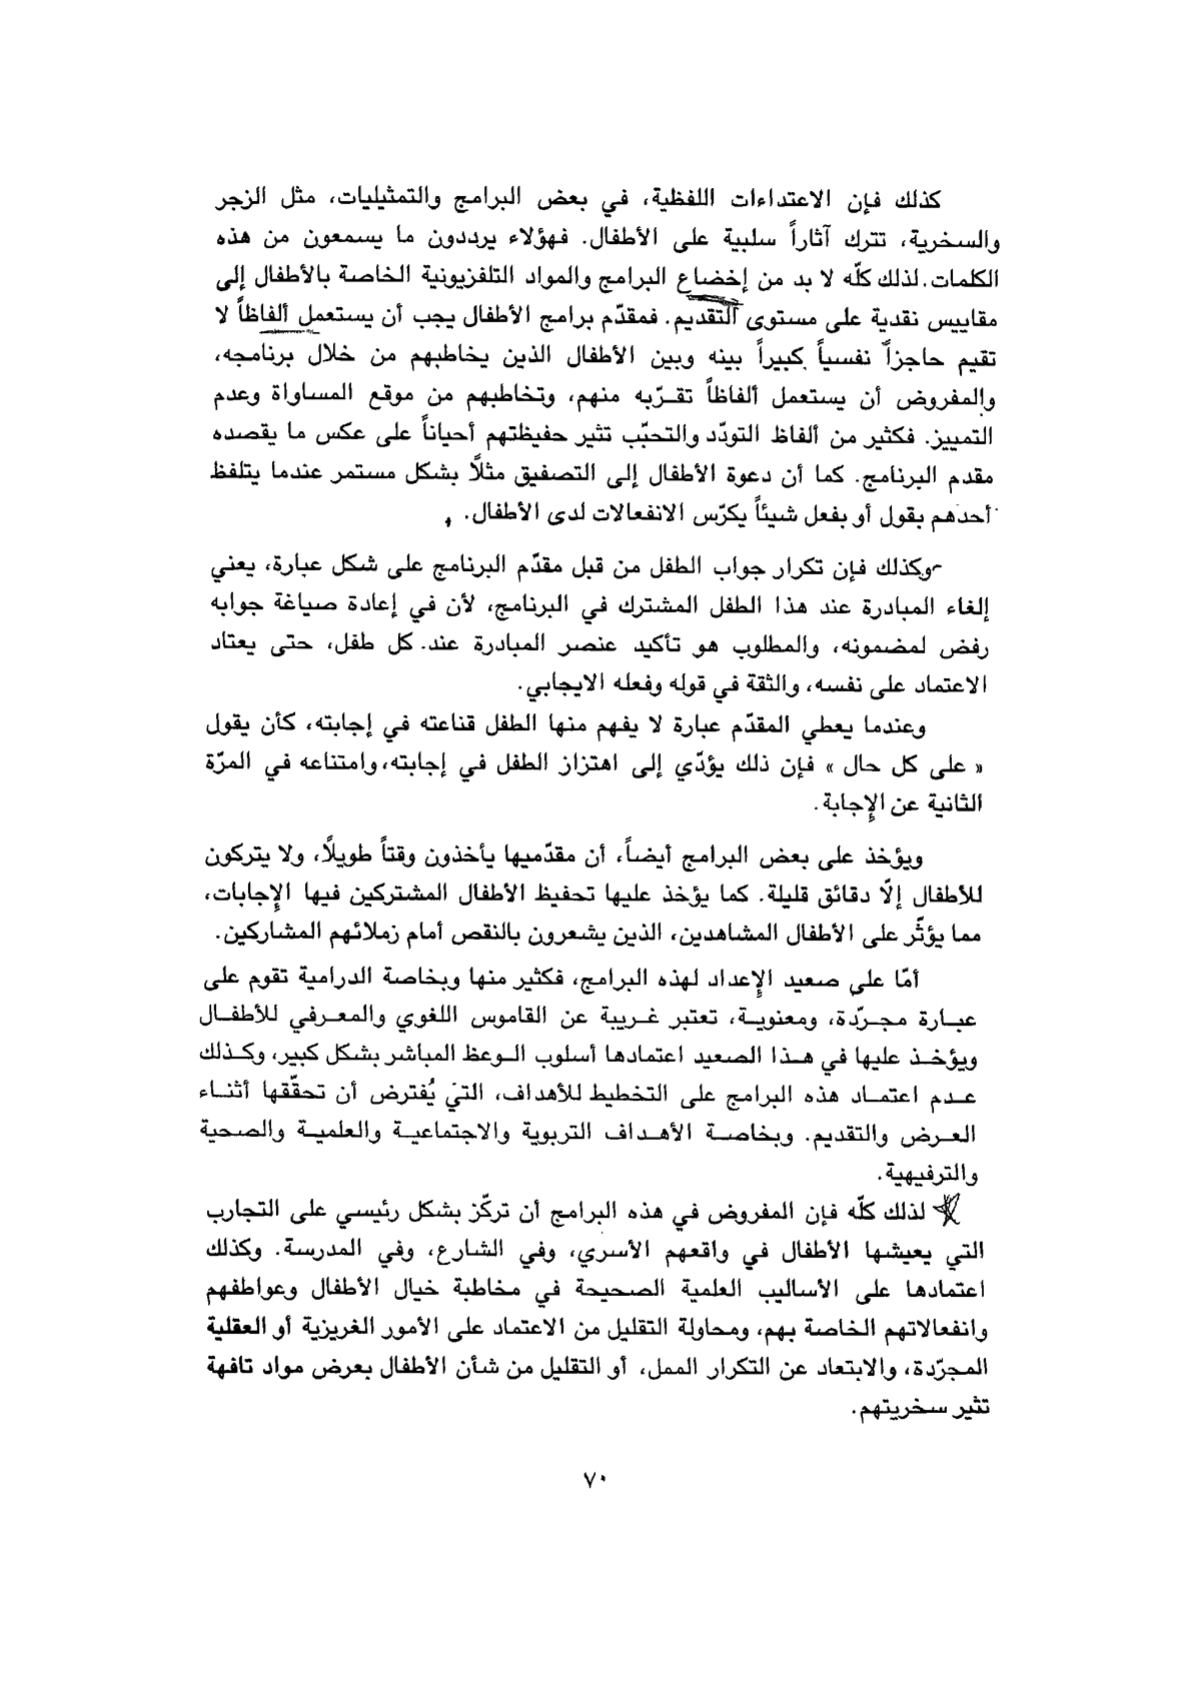 كذلك فإن الاعتداءات اللفظية، في بعض البرامج والتمثيليات، مثل الزجر
والسخرية، تترك آثاراً سلبية على الأطفال. فهؤلاء يرددون ما يسمعون من هذه
الكلمات. لذلك كلّه لا بد من إخضاع البرامج والمواد التلفزيونية الخاصة بالأطفال إلى
مقاييس نقدية على مستوى التقديم. فمقدّم برامج الأطفال يجب أن يستعمل ألفاظاً لا
تقيم حاجزاً نفسياً كبيراً بينه وبين الأطفال الذين يخاطبهم من خلال برنامجه،
والمفروض أن يستعمل ألفاظاً تقـرّبه منهم، وتخاطبهم من موقع المساواة وعدم
التمييز. فكثير من ألفاظ التودّد والتحبّب تثير حفيظتهم أحياناً على عكس ما يقصده
مقدم البرنامج. كما أن دعوة الأطفال إلى التصفيق مثلًا بشكل مستمر عندما يتلفظ
أحدهم بقول أو بفعل شيئاً يكرّس الانفعالات لدى الأطفال.
وكذلك فإن تكرار جواب الطفل من قبل مقدّم البرنامج على شكل عبارة، يعني
إلغاء المبادرة عند هذا الطفل المشترك في البرنامج، لأن في إعادة صياغة جوابه
رفض لمضمونه، والمطلوب هو تأكيد عنصر المبادرة عند. كل طفل، حتى يعتاد
الاعتماد على نفسه، والثقة في قوله وفعله الايجابي.
وعندما يعطي المقدّم عبارة لا يفهم منها الطفل قناعته في إجابته، كأن يقول
« على كل حال » فإن ذلك يؤدّي إلى اهتزاز الطفل في إجابته، وامتناعه في المرّة
الثانية عن الإجابة.
ويؤخذ على بعض البرامج أيضاً، أن مقدّميها يأخذون وقتاً طويلًا، ولا يتركون
للأطفال إلّا دقائق قليلة. كما يؤخذ عليها تحفيظ الأطفال المشتركين فيها الإجابات،
مما يؤثّر على الأطفال المشاهدين، الذين يشعرون بالنقص أمام زملائهم المشاركين.
أمّا على صعيد الإعداد لهذه البرامج، فكثير منها وبخاصة الدرامية تقوم على
عبـارة مجـرّدة، ومعنويـة، تعتبر غـريبة عن القاموس اللغوي والمعـرفي للأطفـال
ويؤخـذ عليها في هـذا الصعيد اعتمادها أسلوب الـوعظ المباشر بشكل كبير، وكـذلك
عـدم اعتمـاد هذه البرامج على التخطيط للأهداف، التي يُفترض أن تحقّقها أثنـاء
العـرض والتقديم. وبخاصـة الأهـداف التربوية والاجتماعيـة والعلميـة والصحية
والترفيهية.
لذلك كلّه فإن المفروض في هذه البرامج أن تركّز بشكل رئيسي على التجارب
التي يعيشها الأطفال في واقعهم الأسري، وفي الشارع، وفي المدرسة. وكذلك
اعتمادها على الأساليب العلمية الصحيحة في مخاطبة خيال الأطفال وعواطفهم
وانفعالاتهم الخاصة بهم، ومحاولة التقليل من الاعتماد على الأمور الغريزية أو العقلية
المجرّدة، والابتعاد عن التكرار الممل، أو التقليل من شأن الأطفال بعرض مواد تافهة
تثير سخريتهم.
٧٠